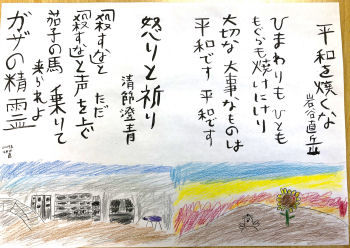 平和を焼くな
岩谷直丘
ひまわりも ひとも
もぐらも焼けにけり
大切な 大事なものは
平和です 平和です
怒りと祈り
清節澄青
「殺すな」と ただ
「殺すな」と声を上ぐ
茄子の馬 乗りて
来られよ
ガザの精霊